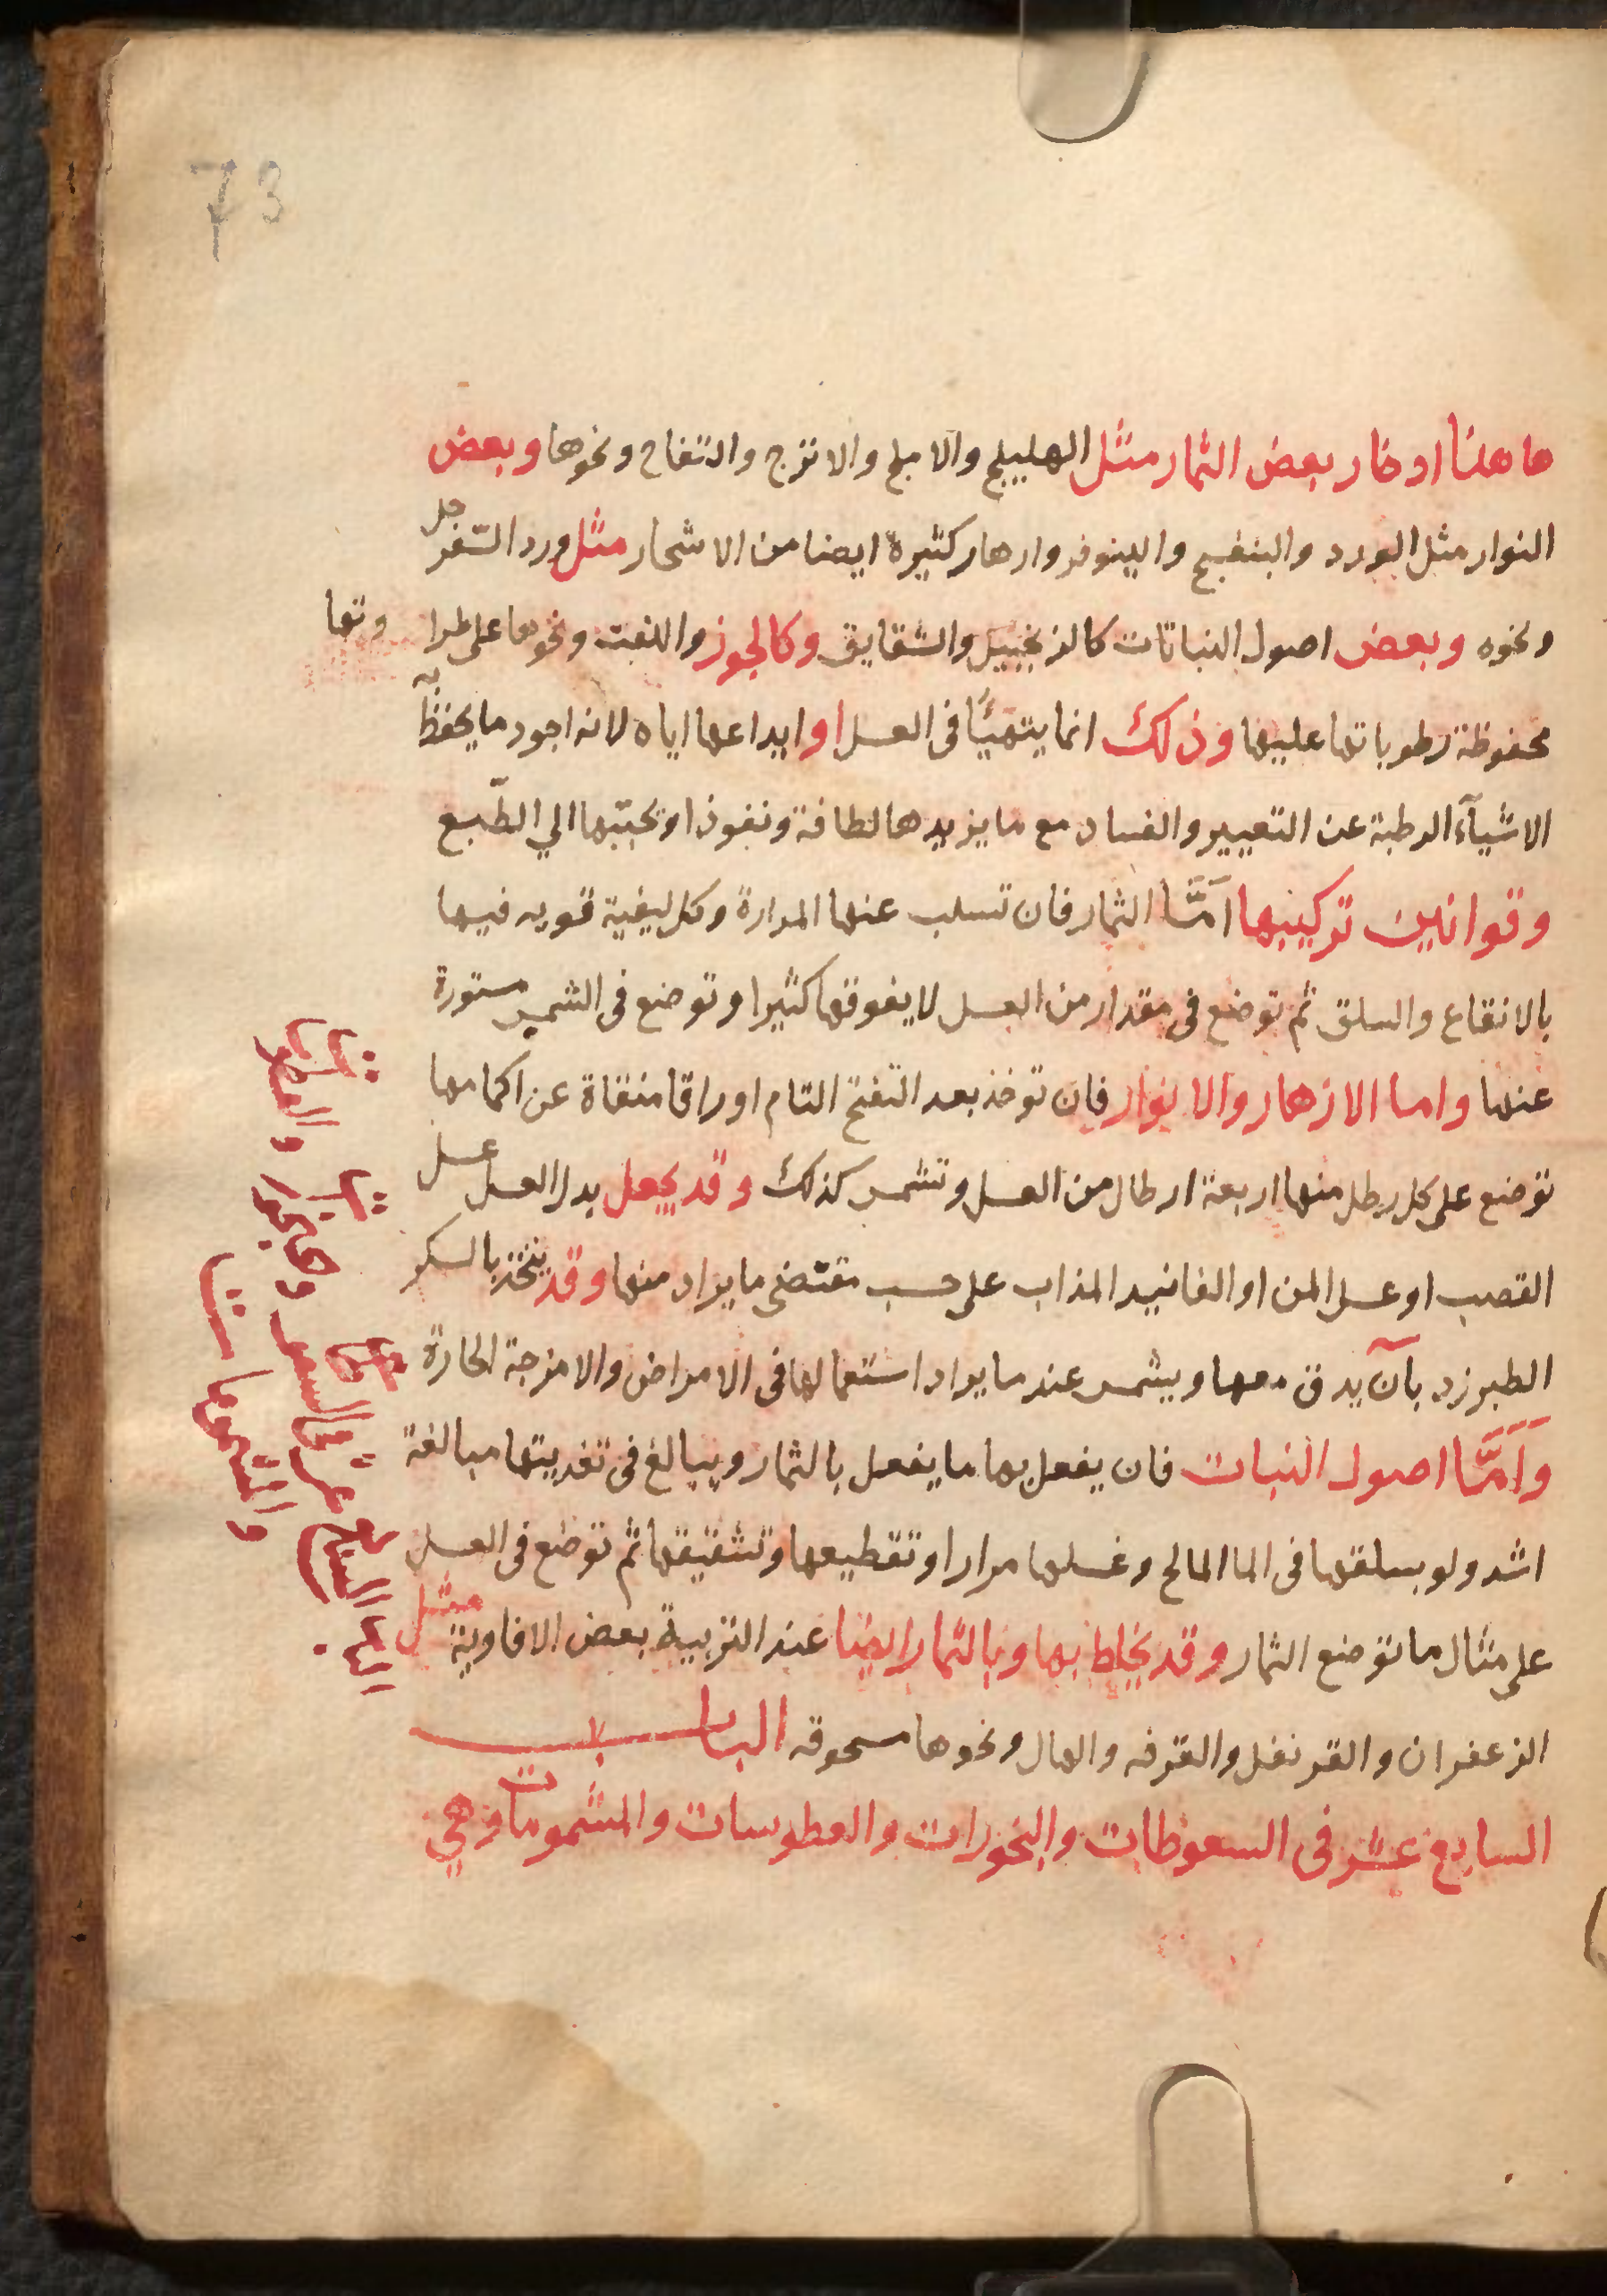 73
هاهنا ادخار بعض الثمار مثل الهليلج والاملج والاترج والتفاح ونحوها وبعض
النوار مثل الورد والبنفسج والينوفر وازهار كثيرة ايضا من الاشجار مثل ورد السفرجل
ونحوه وبعض اصول النباتات كالزنجبيل والشقايق وكالجوز واللفت ونحوها على طراوتها
محفوظة رطوباتها عليها وذلك انما يتهيأ فى العسل او ايداعها اياه لانه اجود ما يحفظ به
الاشيآء الرطبة عن التغيير والفساد مع ما يزيدها لطافة ونفوذا وتحببها الي الطبع
وقوانين تركيبها امَّا الثمار فان تسلب عنها المرارة وكل كيفية قويه فيها
بالانقاع والسلق ثم توضع فى مقدار من العسل لا يفوقها كثيرا وتوضع فى الشمس مستورة
عنها واما الازهار والانوار فان توخذ بعد التفتح التام اوراقا منقاة عن اكمامها
توضع على كل رطل منها اربعة ارطال من العسل وتشمس كذلك وقد يجعل بدل العسل عسل
القصب او عسل المن او الفانيد المذاب على حسب مقتضى ما يراد منها وقد يتخذ بالسكر
الطبرزد بآن يدق معها ويشمس عند ما يراد استعمالها فى الامراض والامزجة الحارة
وَامَّا اصول النبات فان يفعل بها ما يفعل بالثمار ويبالغ فى تغذيتها مبالغة
اشد ولو بسلقها فى الما المالح وغسلها مرارا وتقطيعها وتشقيقها ثم توضع فى العسل
على مثال ما توضع الثمار وقد يخلط بها وبالثمار ايضا عند التربية بعض الافاوية مثل
الزعفران والقرنفل والقرفه والهال ونحوها مسحوقه الباب
السابع عشر فى السعوطات والبخورات والعطوسات والمشمومات وهي
الباب السابع عشر فى السعوطات والبخورات والعطوسات
والمشمومات